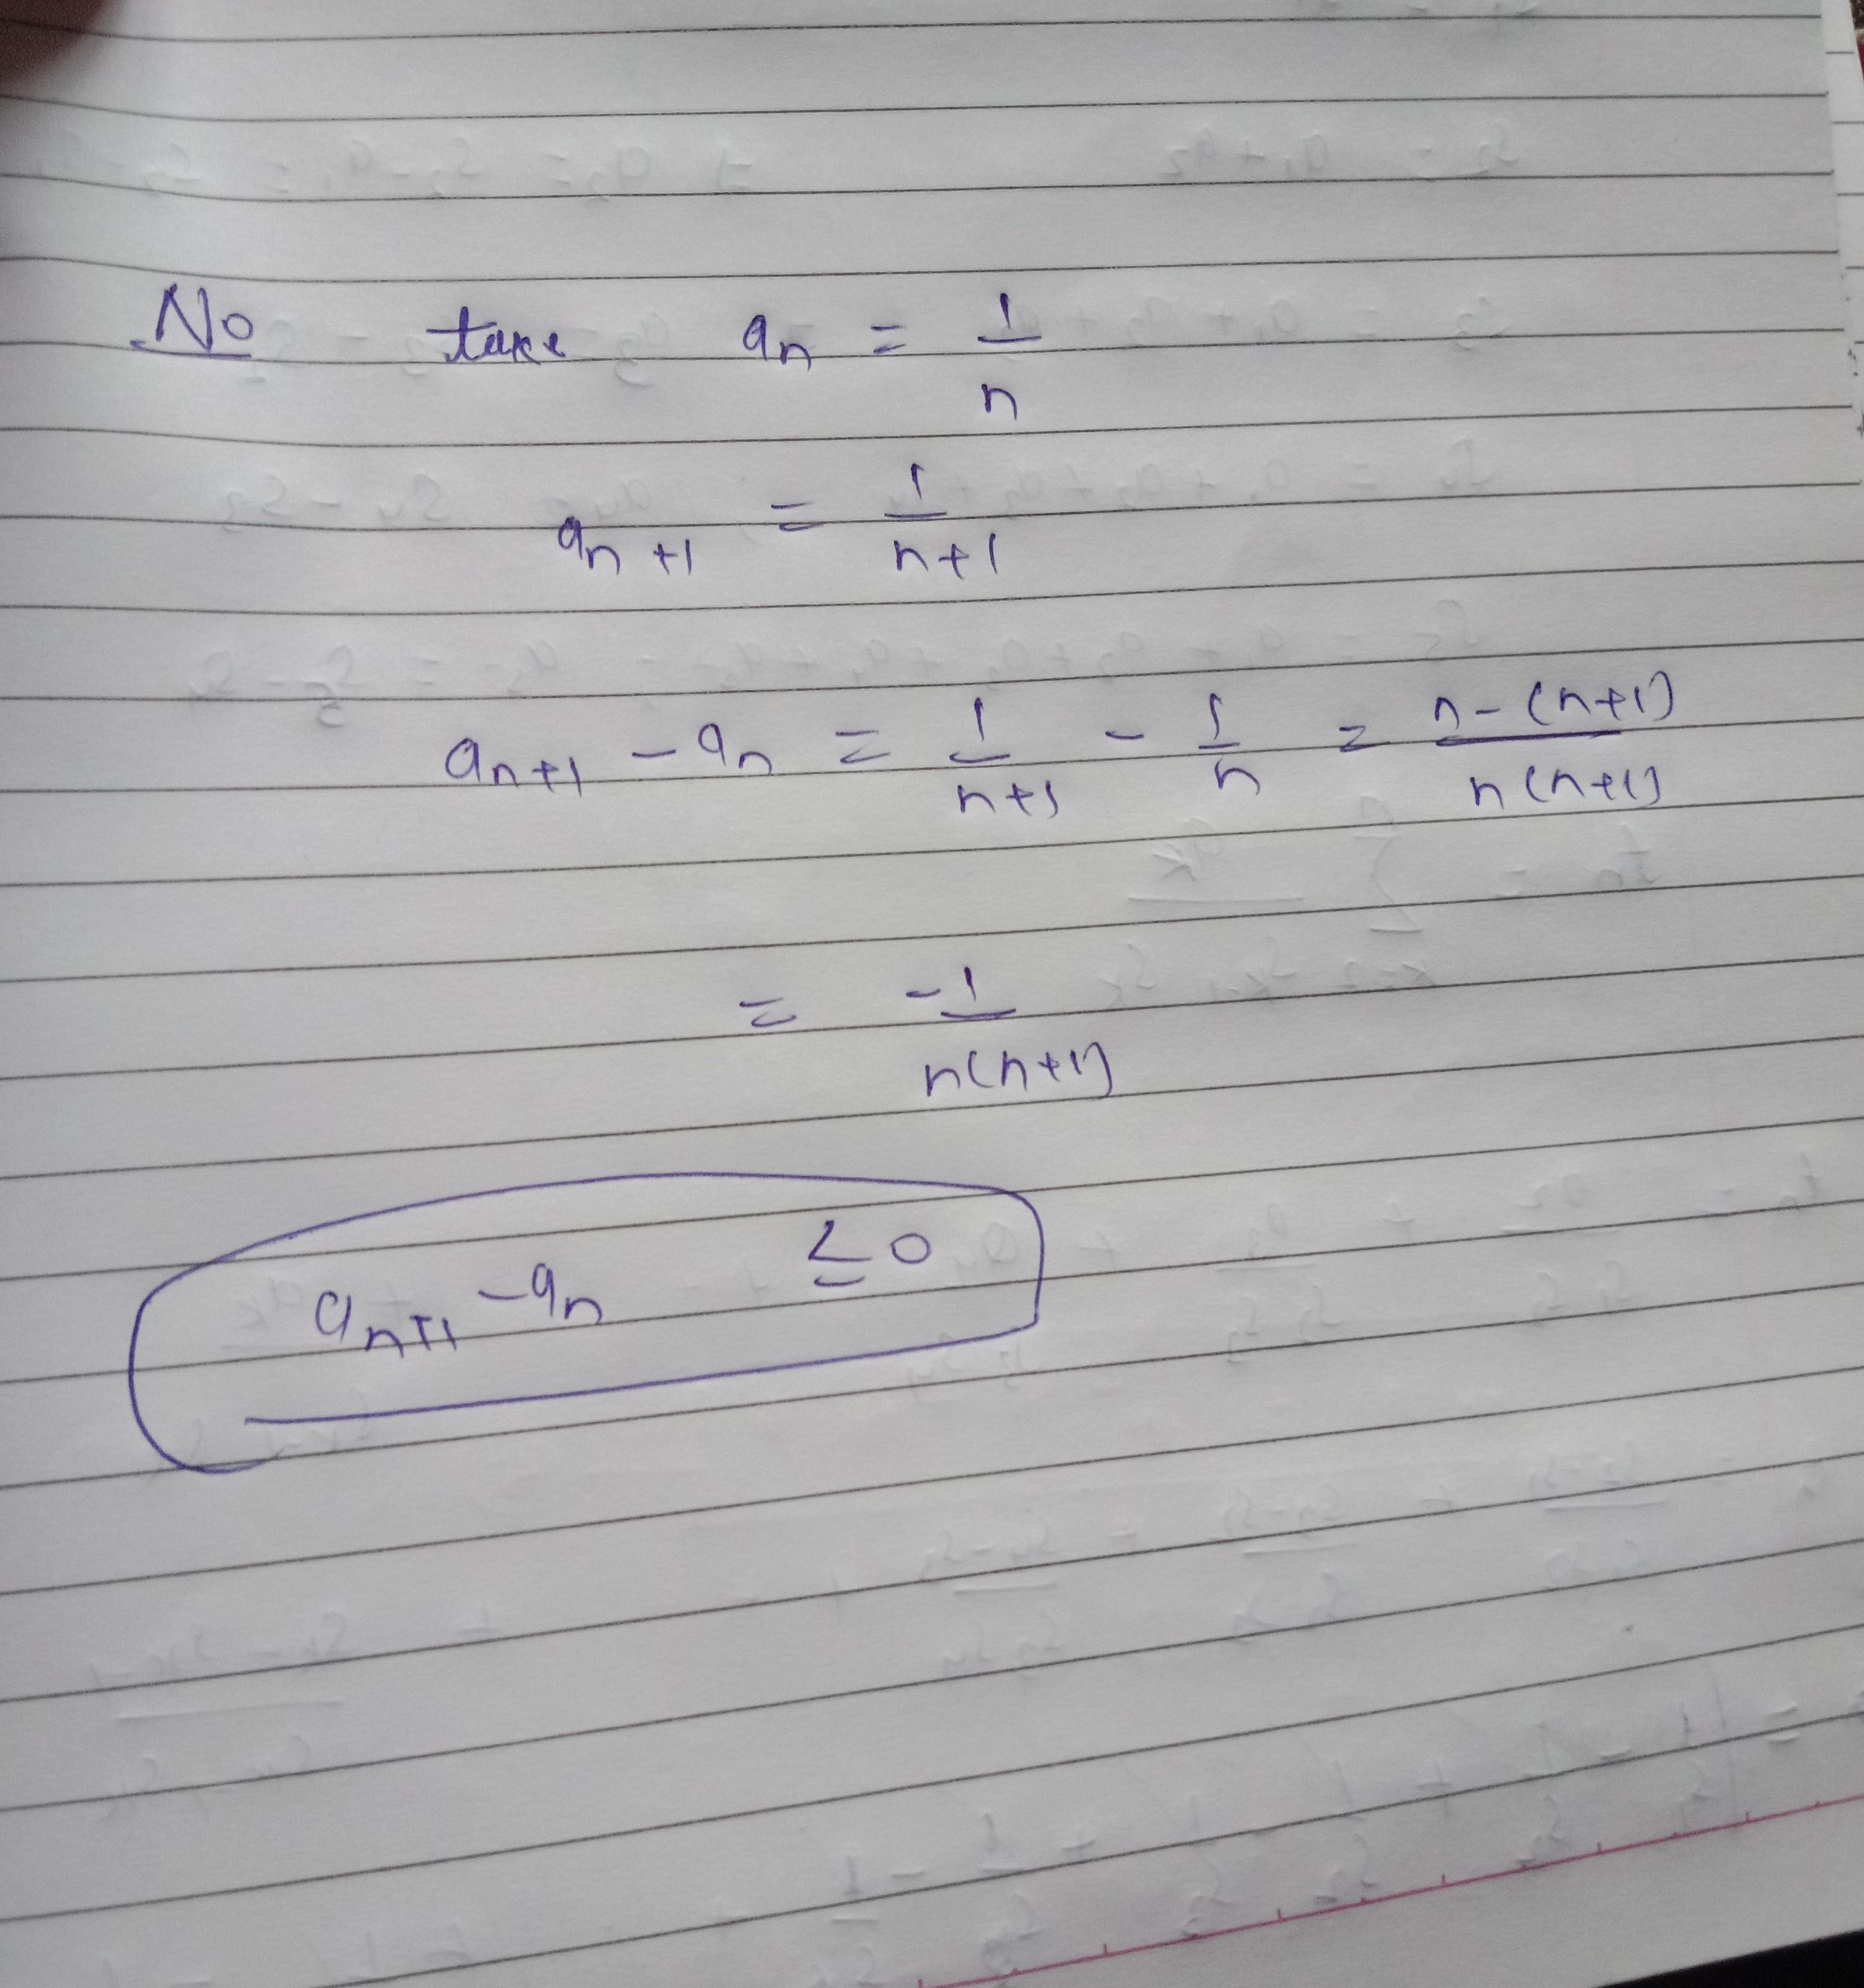 No take aₙ = 1/n
aₙ₊₁ = 1/(n+1)
aₙ₊₁ - aₙ = 1/(n+1) - 1/n = (n-(n+1))/(n(n+1))
= -1/(n(n+1))
aₙ₊₁ - aₙ ≤ 0